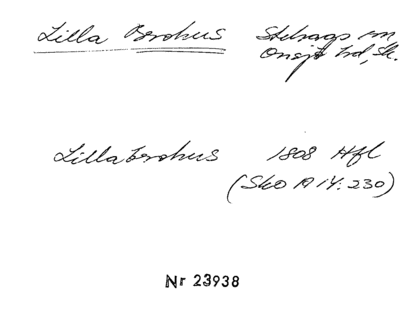 Lilla Brohus Stehags sn
Onsjö hd, Sk.
Lilla Brohus 1808 Hfl
(Sko A IV: 230)
Nr 23938